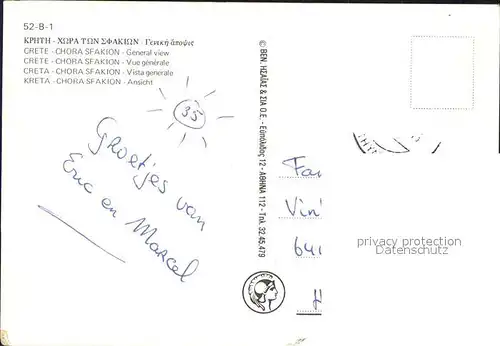 52-B-1
ΚΡΗΤΗ - ΧΩΡΑ ΤΩΝ ΣΦΑΚΙΩΝ - Γενική άποψις
CRETE - CHORA SFAKION - General view
CRETE - CHORA SFAKION - Vue générale
CRETA - CHORA SFAKION - Vista generale
KRETA - CHORA SFAKION - Ansicht
35
Groetjes van
Eric en Marcel
© ΒΕΝ. ΗΣΑΪΑΣ & ΣΙΑ Ο.Ε. - Ευπόλιδος 12 - ΑΘΗΝΑ 112 - Τηλ. 32.45.479
Fa
Vin
privacy protection
(c)ansichtskartenversand.com
H